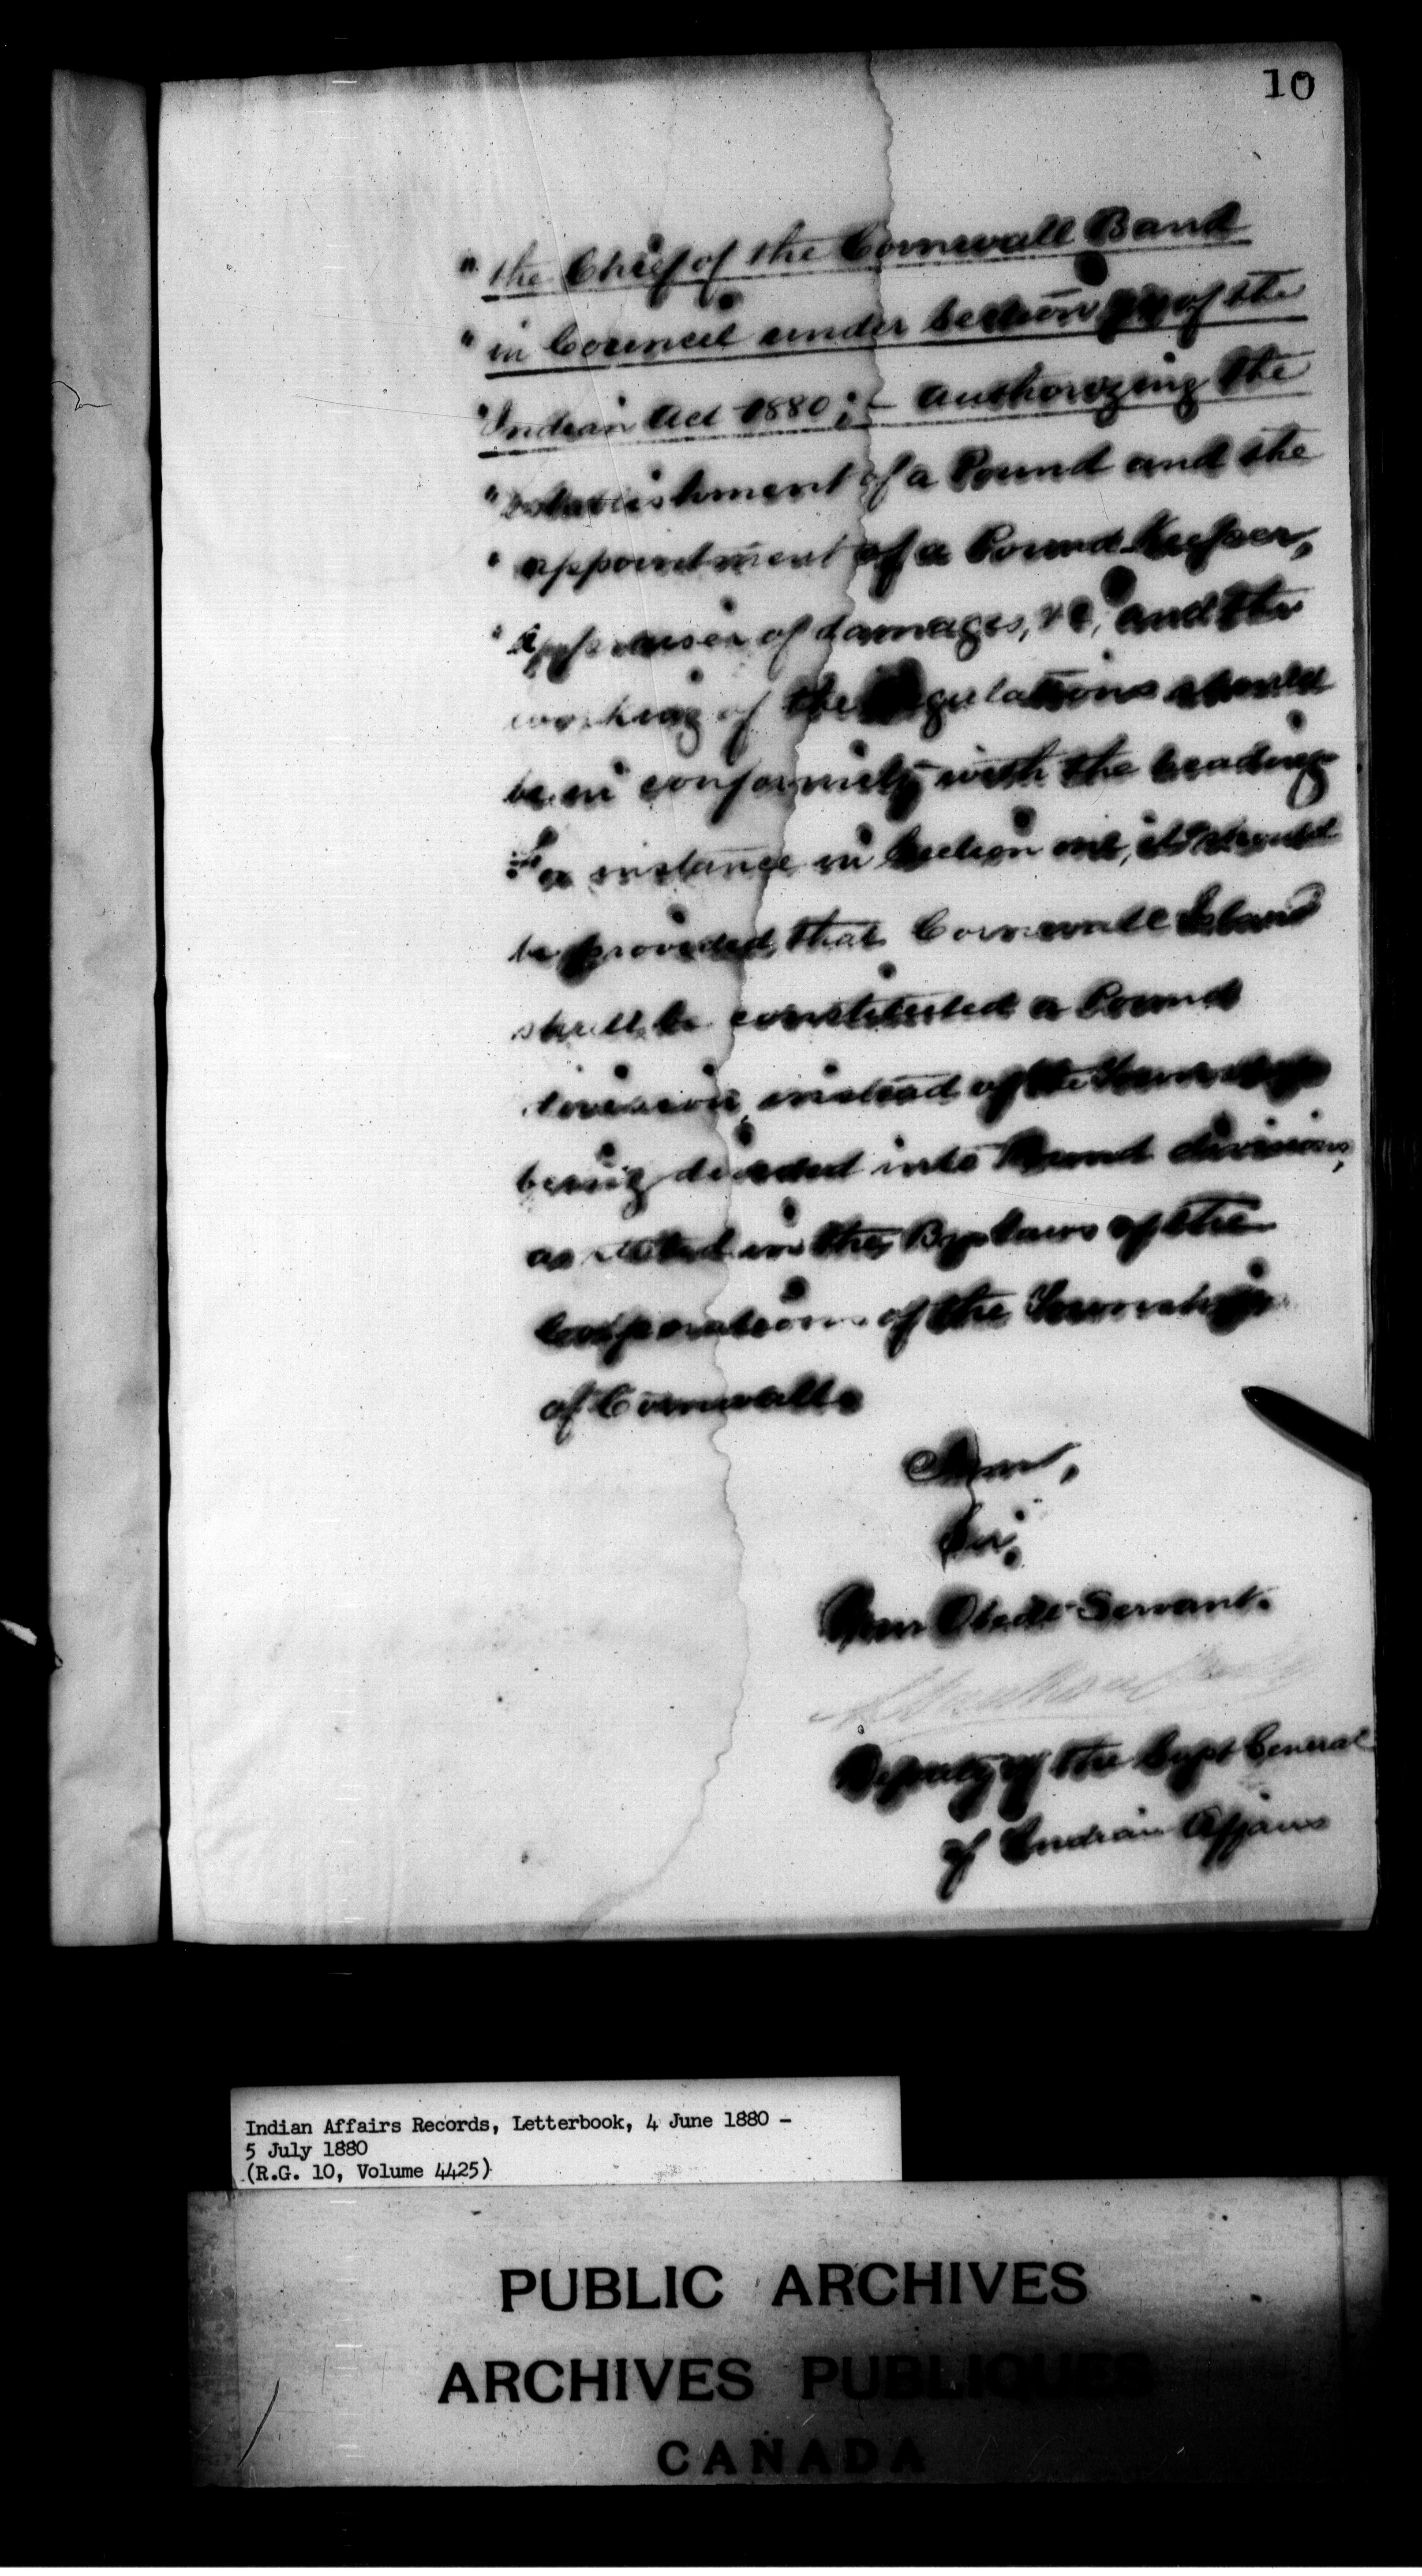 10
" the Chief of the Cornwall Band
" in Council under Section of the
" Indian Act 1880; – authorizing the
" establishment of a Pound and the
" appointment of a Pound Keeper,
" appraiser of damages, &c, and the
working of the Regulations should
be in conformity with the heading
For instance in Section one, it should
be provided that Cornwall Island
shall be constituted a Pound
division, instead of the Township
being divided into Pound divisions,
as stated in the By-laws of the
Corporation of the Township
of Cornwall.
I am,
Sir,
Your Obedt Servant.
Deputy of the Supt General
of Indian Affairs
Indian Affairs Records, Letterbook, 4 June 1880 –
5 July 1880
(R.G. 10, Volume 4425)
PUBLIC ARCHIVES
ARCHIVES PUBLIQUES
CANADA